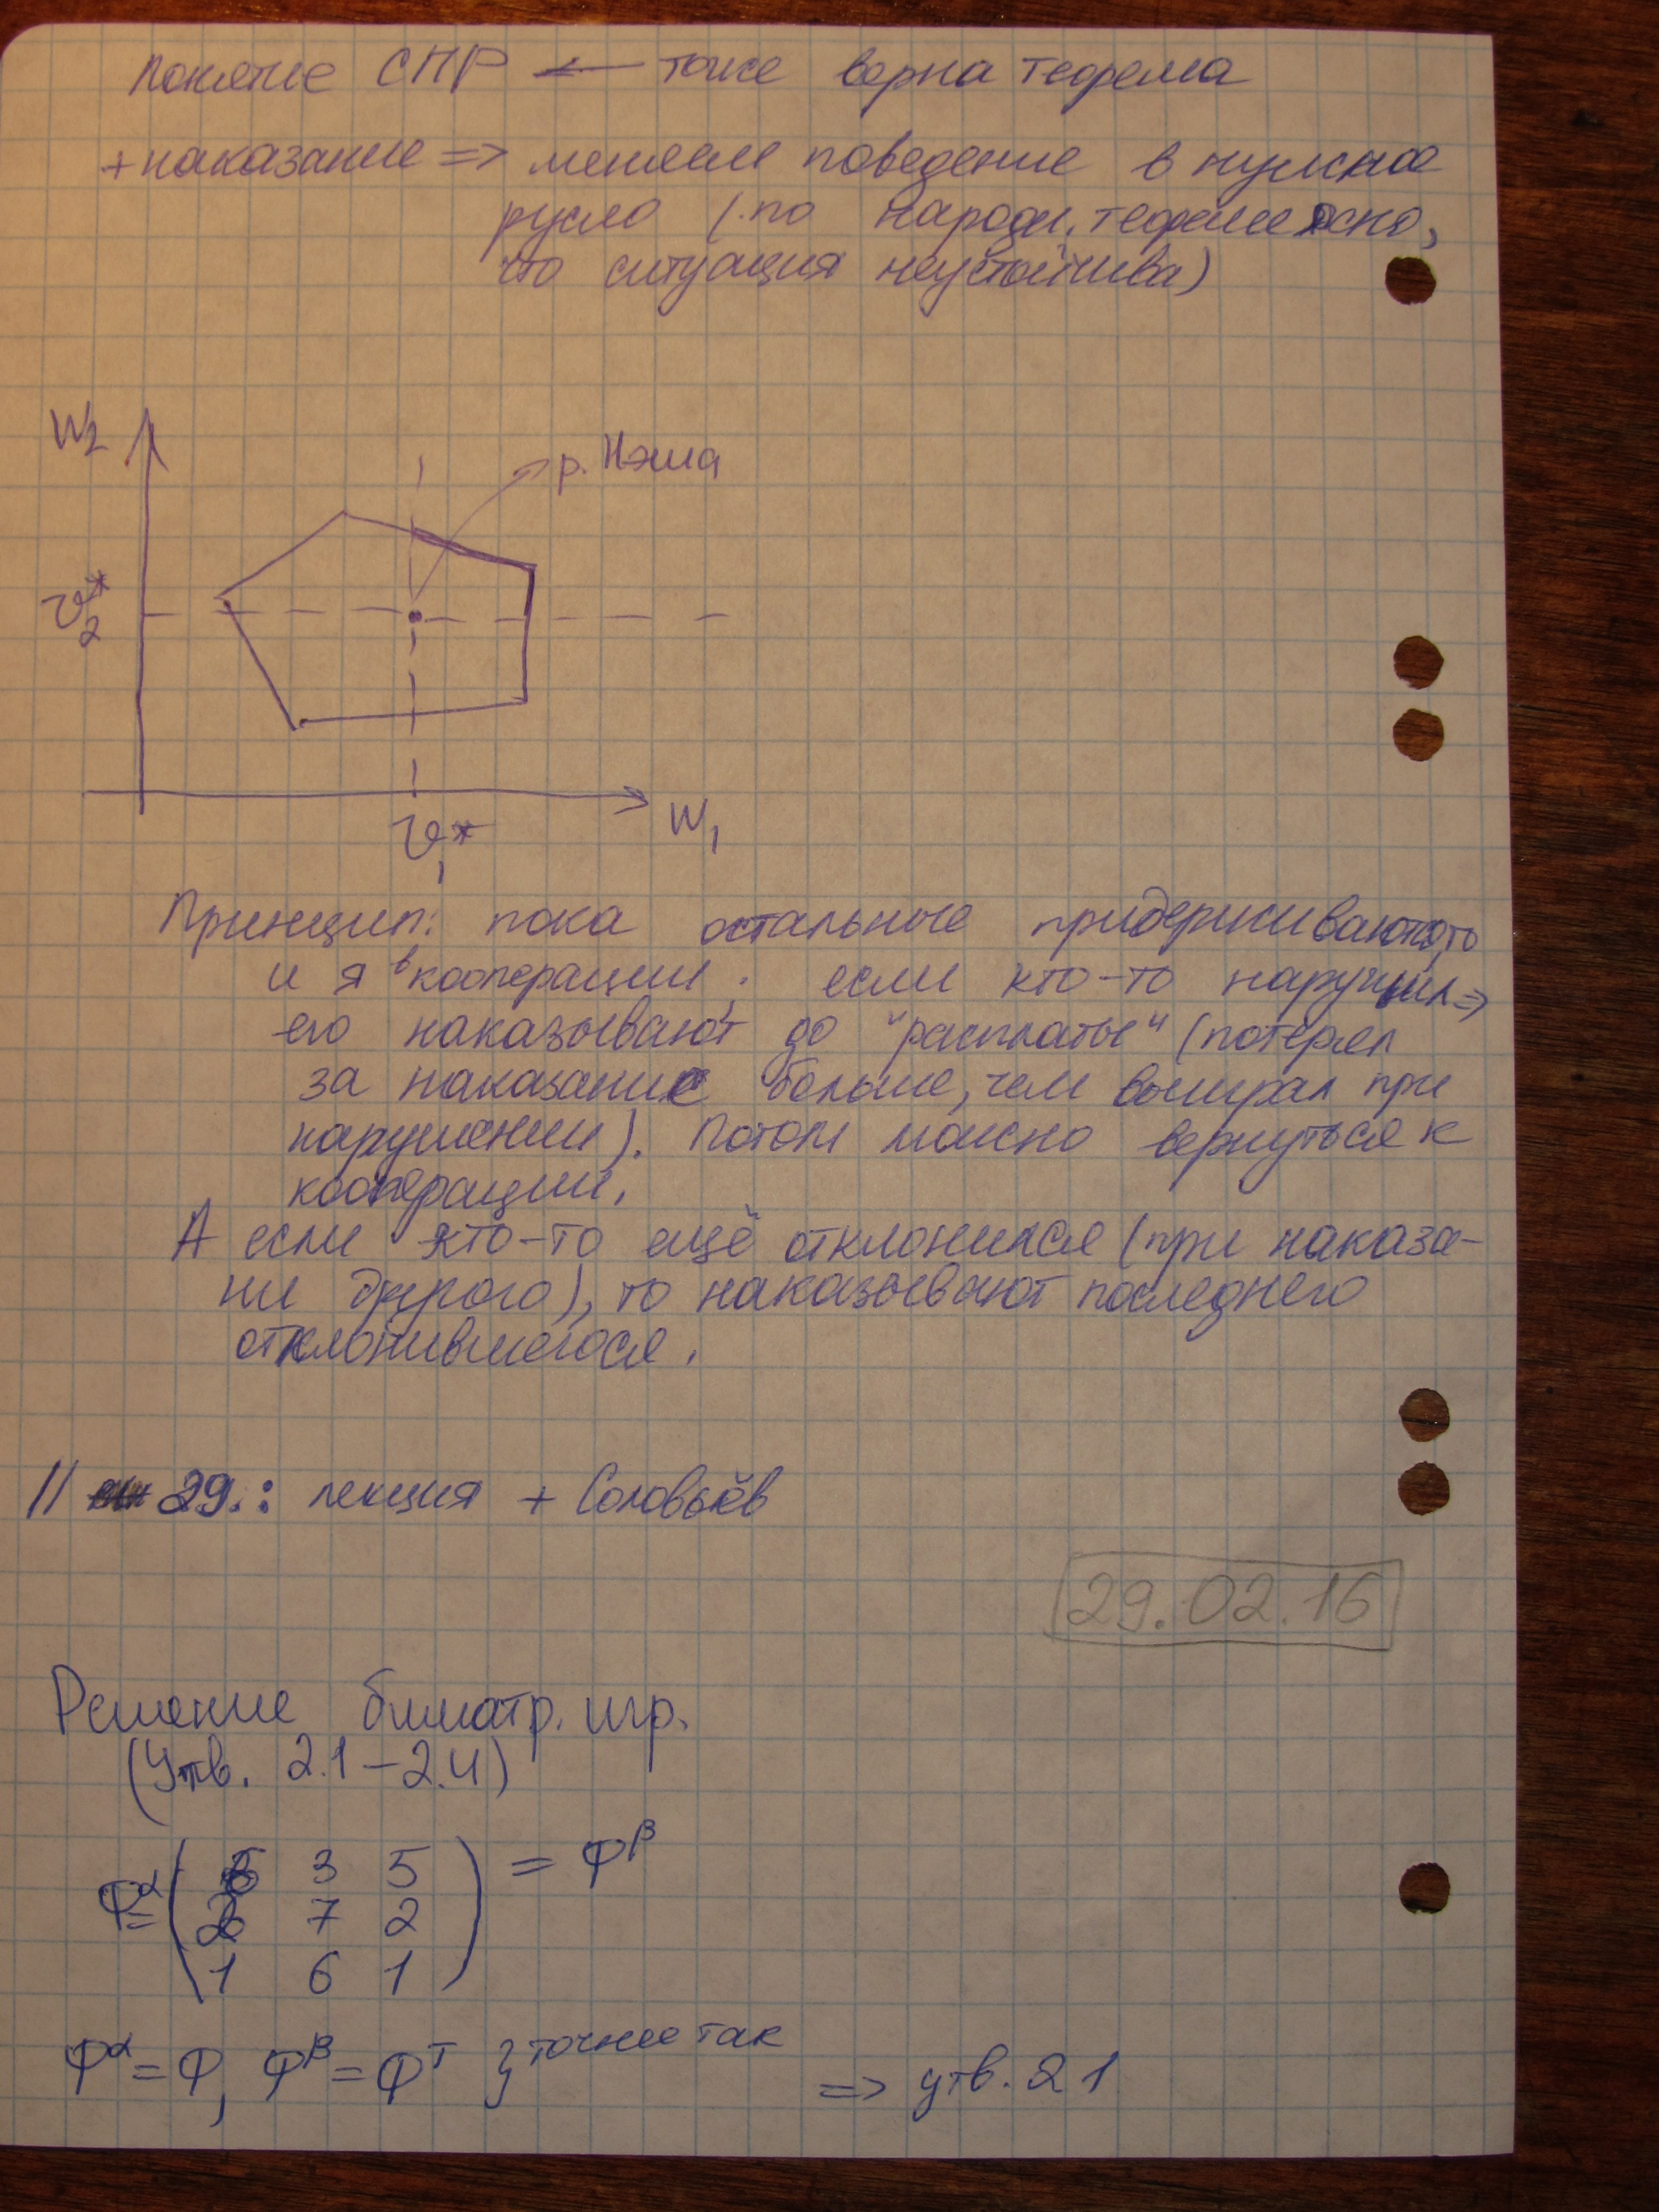 Понятие СПР ← тоже верна теорема
+ наказание => меняем поведение в нужное
русло (по народн. теореме ясно,
что ситуация неустойчива)
W₂
р. Нэша
v₂*
W₁
v₁*
Принцип: пока остальные придерживаются, то
и я в кооперации; если кто-то нарушил =>
его наказывают до "расплаты" (потерял
за наказание больше, чем выиграл при
нарушении). Потом можно вернуться к
кооперации.
А если кто-то ещё отклонился (при наказа-
ни другого), то наказывают последнего
отклонившегося.
// 29.: лекция + Соловьёв
29.02.16
Решение биматр. игр.
(Утв. 2.1 – 2.4)
Φ^α = ( 3 5 ) = Φ^β
2 7 2
1 6 1
Φ^α = Φ, Φ^β = Φ^T } точнее так => утв. 2.1